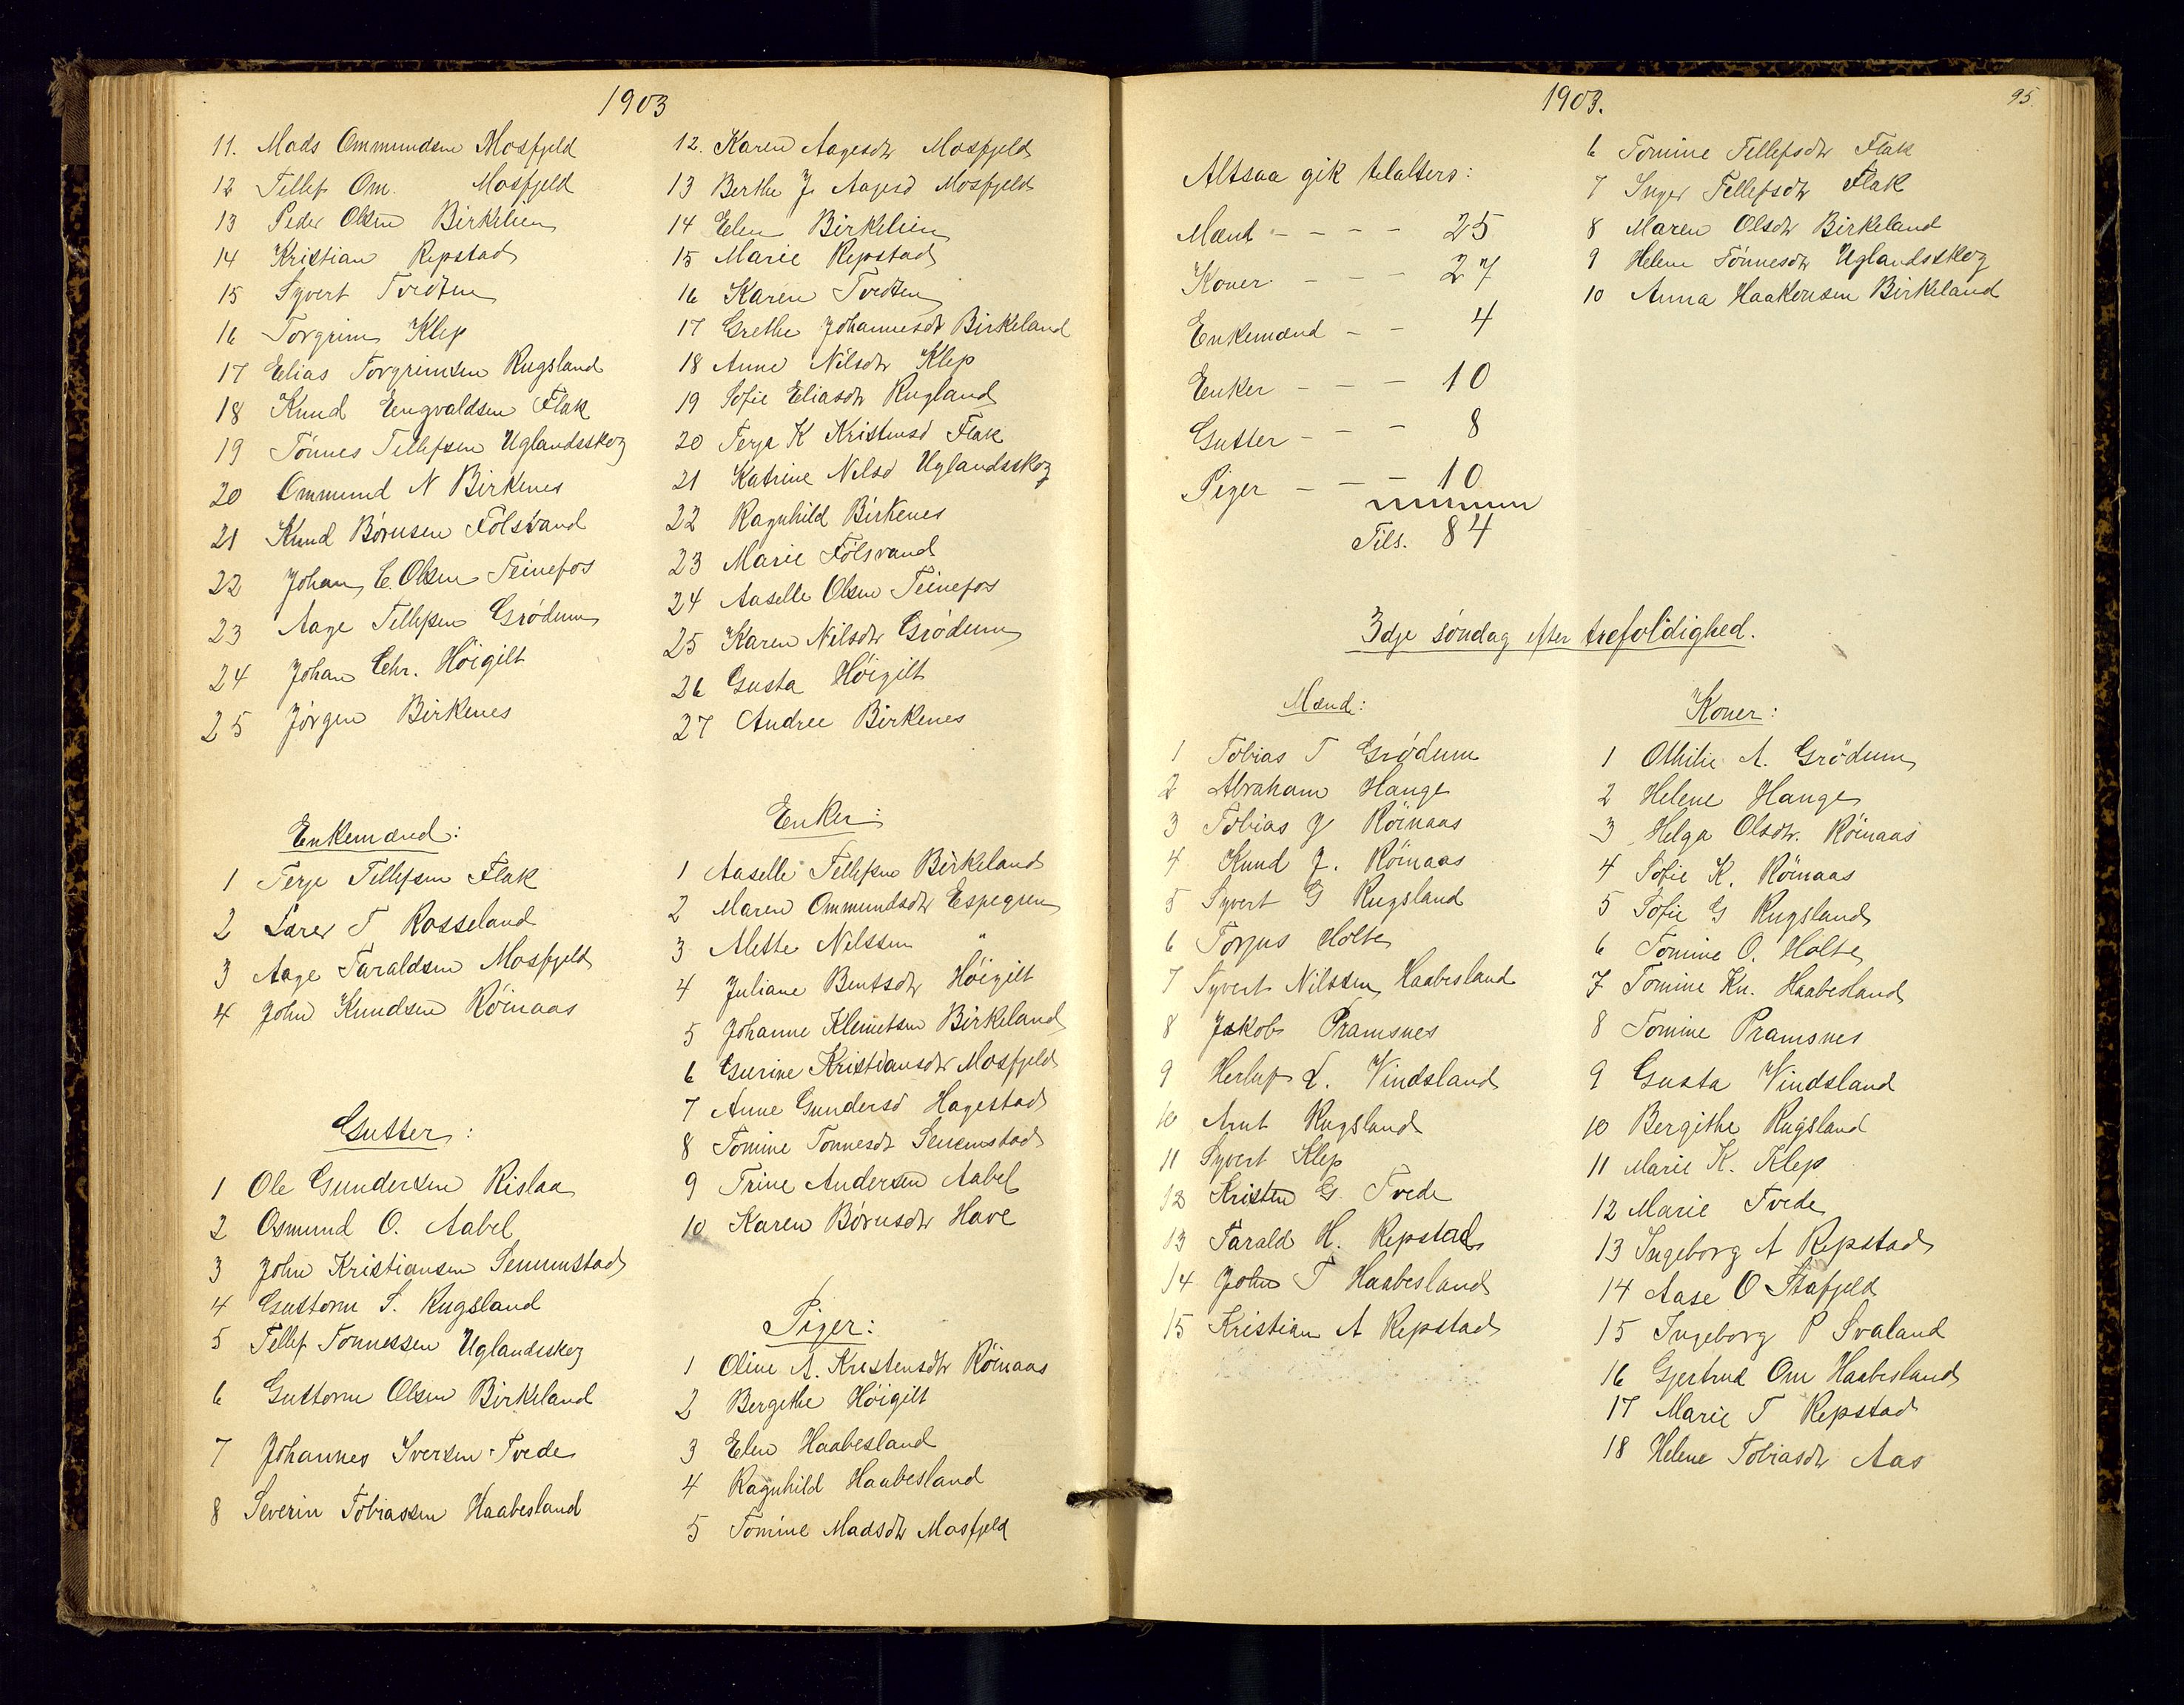 1903
11. Mads Ommundsen Mosfjeld
12 Tellef Om. Mosfjeld
13 Peder Olsen Birkelien
14 Kristian Repstad
15 Syvert Tveiten
16 Torgrim Klep
17 Elias Torgrimsen Rugsland
18 Knud Engvaldsen Flak
19 Tönnes Tellefsen Uglandsskog
20 Ommund N Birkenes
21 Knud Börusen Fölsvand
22 Johan C. Olsen Teinefos
23 Aage Tellefsen Grödum
24 Johan Chr. Höigilt
25 Jörgen Birkenes
Enkemænd:
1 Terje Tellefsen Flak
2 Lars T Rosseland
3 Aage Taraldsen Mosfjeld
4 John Knudsen Röinaas
Gutter:
1 Ole Gundersen Rislaa
2 Osmund O. Aabel
3 John Kristiansen Senumstad
4 Guttorm S. Rugsland
5 Tellef Tönnessen Uglandsskog
6 Guttorm Olsen Birkeland
7 Johannes Iversen Tvede
8 Severin Tobiassen Haabesland
12. Karen Aagesdtr Mosfjeld
13 Berthe J. Aagesd Mosfjeld
14 Elen Birkelien
15 Marie Repstad
16 Karen Tveiten
17 Grethe Johannesdtr Birkeland
18 Anne Nilsdtr Klep
19 Sofie Eliasdtr Rugland
20 Terja K Kristensd Flak
21 Katrine Nilsd Uglandsskog
22 Ragnhild Birkenes
23 Marie Fölsvand
24 Aaselle Olsen Teinefos
25 Karen Nilsdtr Grödum
26 Gusta Höigilt
27 Andree Birkenes
Enker:
1 Aaselle Tellefsen Birkeland
2 Maren Ommundsdtr Espegren
3 Mette Nelssen "
4 Juliane Bentsdtr Höigilt
5 Johanne Klemetsen Birkeland
6 Gurine Kristiansdtr Mosfjeld
7 Anne Gundersd Hagestad
8 Tomine Tönnesdtr Senumstad
9 Trine Andersen Aabel
10 Karen Börusdtr Have
Piger:
1 Oline A. Kristensdtr Röinaas
2 Bergithe Höigilt
3 Elen Haabesland
4 Ragnhild Haabesland
5 Tomine Madsdtr Mosfjeld
1903.
95.
Altsaa gik telalters:
Mænd - - - - 25
Koner - - - 27
Enkemænd - - 4
Enker - - - 10
Gutter - - - 8
Piger - - - 10
Tils. 84
6 Tomine Tellefsdtr Flak
7 Inger Tellefsdtr Flak
8 Maren Olsdtr Birkeland
9 Helene Tönnesdtr Uglandsskog
10 Anna Haakonsen Birkeland
3dje söndag efter trefoldighed.
Mænd:
1 Tobias T Grödum
2 Abraham Hauge
3 Tobias J Röinaas
4 Knud J. Röinaas
5 Syvert G Rugsland
6 Torjus Holte
7 Syvert Nilssen Haabesland
8 Jakob Pramsnes
9 Herluf L. Vindsland
10 Arnt Rugsland
11 Syvert Klep
12 Kristen G. Tvede
13 Tarald H. Repstad
14 John T Haabesland
15 Kristian A Repstad
Koner:
1 Othilie A. Grödum
2 Helene Hauge
3 Helga Olsdtr. Röinaas
4 Sofie K. Röinaas
5 Sofie G Rugsland
6 Tomine O. Holte
7 Tomine Kn. Haabesland
8 Tomine Pramsnes
9 Gusta Vindsland
10 Bergithe Rugsland
11 Marie K. Klep
12 Marie Tvede
13 Ingeborg A Repstad
14 Aase O Stafjeld
15 Ingeborg P Svaland
16 Gjertrud Om Haabesland
17 Marie T Repstad
18 Helene Tobiasdtr Aas